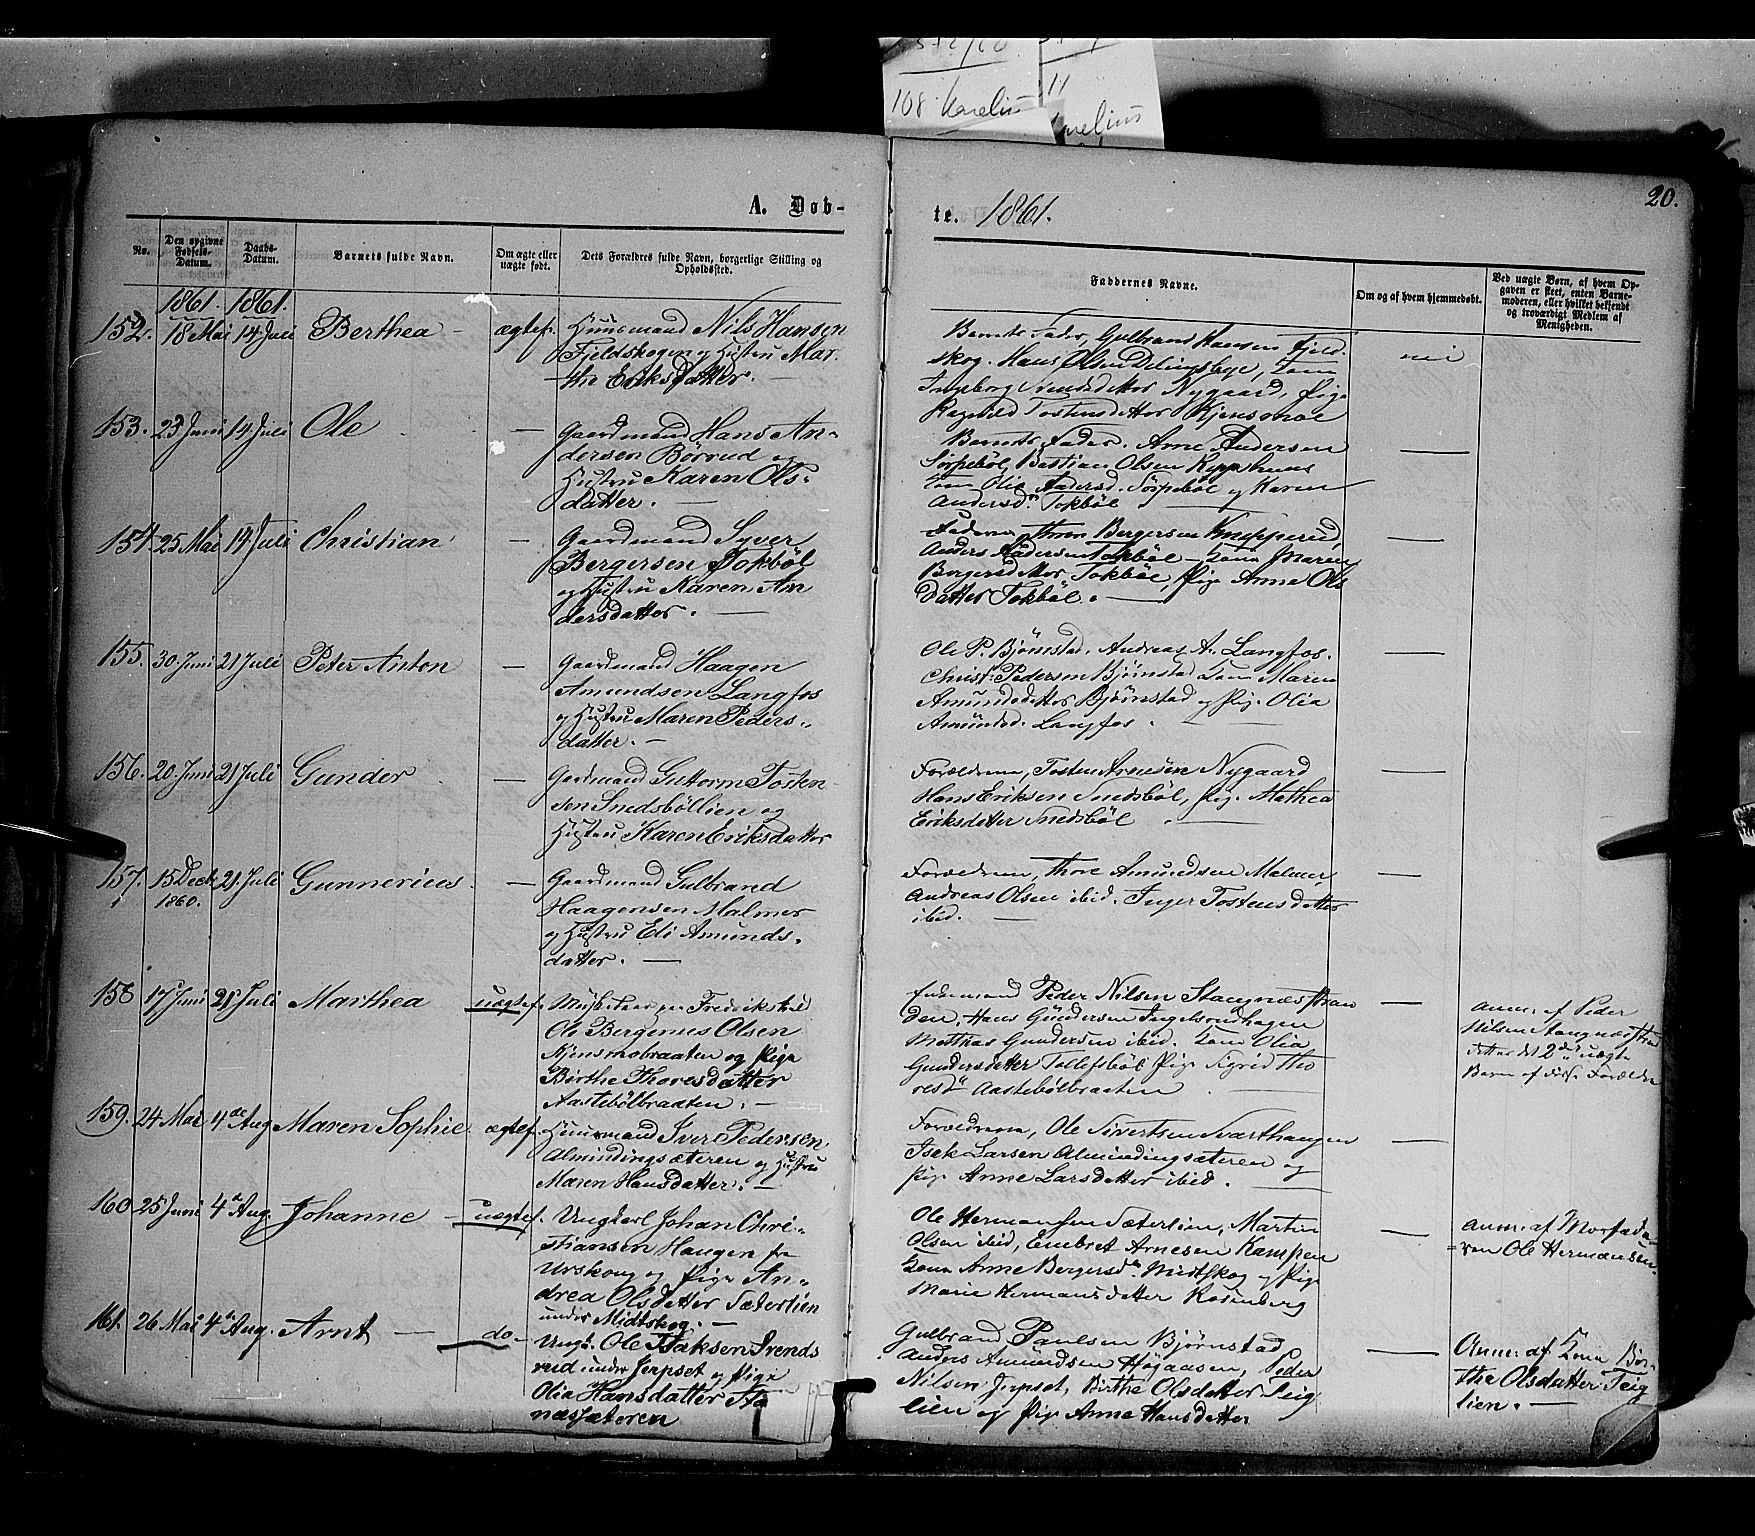 108 Karelius
11
A. Døb-
te. 1861.
20.
No.
Den opgivne Fødsels-Datum.
Daabs-Datum.
Barnets fulde Navn.
Om ægte eller uægte født.
Dets Forældres fulde Navn, borgerlige Stilling og Opholdssted.
Faddernes Navne.
Om og af hvem hjemmedøbt.
Ved uægte Børn, af hvem Opgaven er skeet, enten Barnemoderen, eller hvilket bekjendt og troværdigt Medlem af Menigheden.
1861. 1861.
152. 18 Mai 14 Juli Berthea - ægtef. Huusmand Nils Hansen
Fjeldskogen og Hustru Mar-
the Eriksdatter. —
Barnets Fader, Gulbrand Hansen Fjeld-
skog. Hans Olsen Dilingsbye, Kone
Ingeborg Nygaard, Pige
Ragnild Tostensdatter Kjensmoe
nei
153. 23 Juni 14 Juli Ole — Gaardmand Hans An-
dersen Börrud og
Hustru Karen Ols-
datter. —
Barnets Fader. Arne Andersen
Sörpeböl, Bastian Olsen
Kone Olia Andersd. Sörpeböl og Karen
Andersdr. Tokböl —
154. 25 Mai 14 Juli Christian — Gaardmand Syver
Bergersen Tokböl
og Hustru Karen An
dersdatter. —
Faderen, Thron Bergersen Knapperud,
Anders Andersen Tokböl - Kone Maren
Bergersdatter Tokböl, Pige Anne Ols
datter Tokböl. —
155. 30 Juni 21 Juli Peter Anton — Gaardmand Haagen
Amundsen Langfos
og Hustru Maren Peders-
datter. —
Ole P. Bjørnstad, Andreas A. Langfos.
Christ: Pedersen Bjørnstad Kone Maren
Amundsdatter Bjørnstad og Pig. Olia
Amundsd. Langfos.
156. 20 Juni 21 Juli Gunder — Gaardmand Guttorm Tosten
sen Smedsböllien og
Hustru Karen Eriksdatter
Forældrene, Tosten Arnesen Nygaard
Hans Eriksen Smedsböl, Pig. Mathea
Eriksdatter Smedsböl —
157. 15 Decb 1860. 21 Juli Gunnerius — Gaardmand Gulbrand
Haagensen Malmer
og Hustru Eli Amunds-
datter. —
Forældrene, Thore Amundsen Malmer,
Andreas Olsen ibid. Inger Tostensdatter
ibid. —
158 17 Juni 21 Juli Marthea uægtef. fra Fredrikshald
Ole Bergenius Olsen
Kjensmobraaten og Pige
Birthe Thoresdatter
Aastebölbraaten. —
Peder Nilsen Stangnæsstran
den. Hans Gundersen Ingelsrudhagen
Mathias Gundersen ibid. Kone Olia
Gundersdatter Tollefsböl Pige Sigrid Tho
resdr. Aastebölbraaten —
Anm: af Peder
Nilsen Stangnæsstran
dette det 2det uægte
Barn af disse Forældre
159. 24 Mai 4de Aug Maren Sophie ægtef. Huusmand Iver Pedersen
Almindingsæteren og Hustru
Maren Hansdatter. —
Forældrene, Ole Sivertsen Svarthaugen
Isak Larsen Almindingsæteren og
Pig. Anne Larsdatter ibid.
160 25 Juni 4de Aug. Johanne — uægtef. Ungkarl Johan Chri-
stiansen Haugen fra
Urskoug og Pige An-
drea Olsdatter Sæterlien
under Midtskog. —
Ole Hermansen Sæterlien, Martin
Olsen ibid, Embret Arnesen Kampen
Kone Anne Bergersdr. Midtskog og Pige
Marie Hermansdatter Rosenberg
Anm: af Morfade-
ren Ole Hermansen.
161. 26 Mai 4de Aug. Arnt — do- Ungk. Ole Isaksen Svends
rud under Jerpset og Pige
Olia Hansdatter Aa
næssæteren
Gulbrand Paulsen Bjørnstad
Anders Amundsen Høgaasen, Peder
Nilsen Jerpset, Birthe Olsdatter Teig
lien og Pige Anne Hansdatter
Anm: af Kone Bir-
the Olsdatter Teig
lien. —